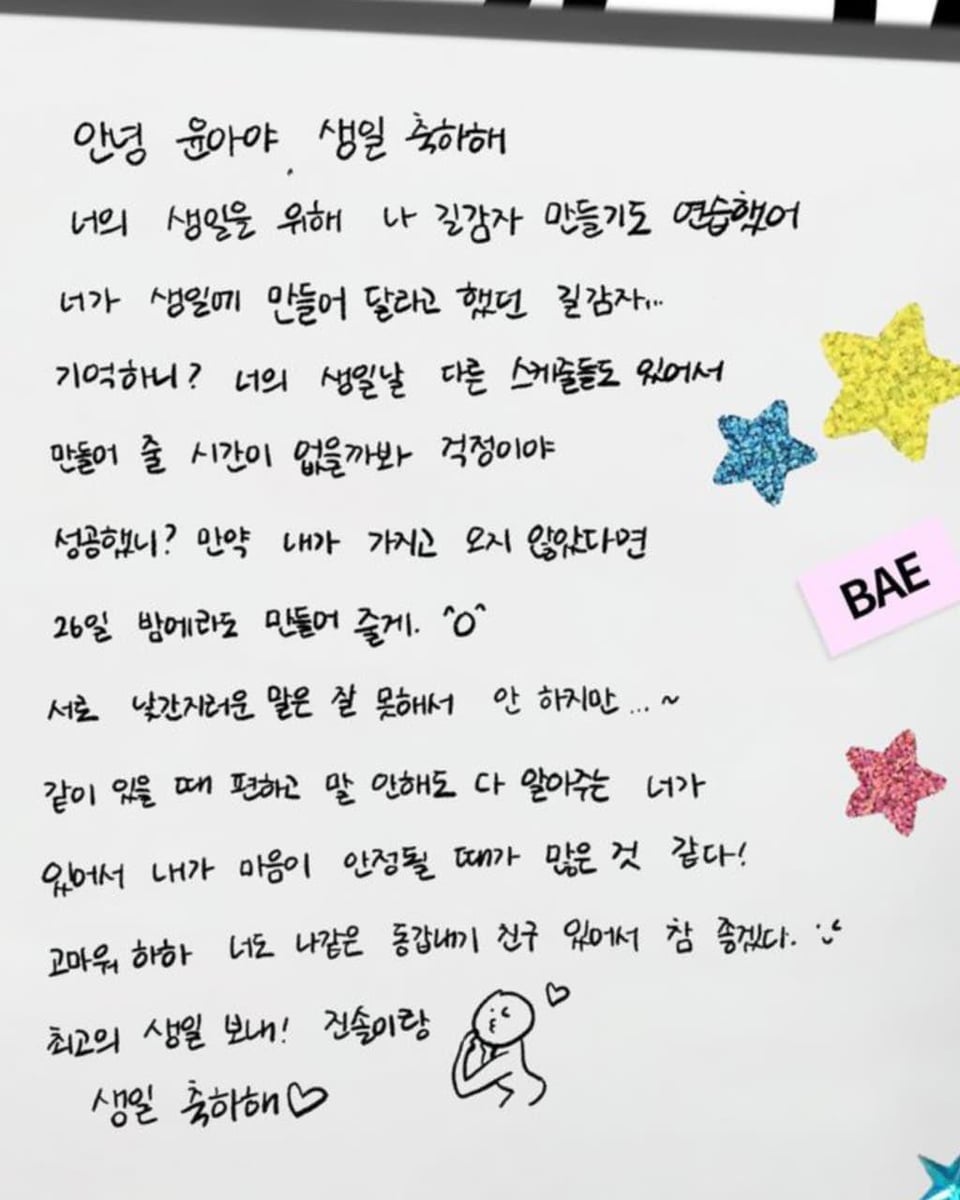 안녕 윤아야. 생일 축하해
너의 생일을 위해 나 길감자 만들기도 연습했어
너가 생일에 만들어 달라고 했던 길감자...
기억하니? 너의 생일날 다른 스케줄들도 있어서
만들어 줄 시간이 없을까봐 걱정이야
성공했니? 만약 내가 가지고 오지 않았다면
26일 밤에라도 만들어 줄게. ^O^
서로 낯간지러운 말은 잘 못해서 안 하지만...~
같이 있을 때 편하고 말 안해도 다 알아주는 너가
있어서 내가 마음이 안정될 때가 많은 것 같다!
고마워 하하 너도 나같은 동갑내기 친구 있어서 참 좋겠다.
최고의 생일 보내! 진솔이랑
생일 축하해♡
BAE